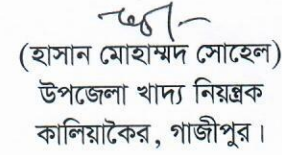 (হাসান মোহাম্মদ সোহেল)
উপজেলা খাদ্য নিয়ন্ত্রক
কালিয়াকৈর, গাজীপুর।